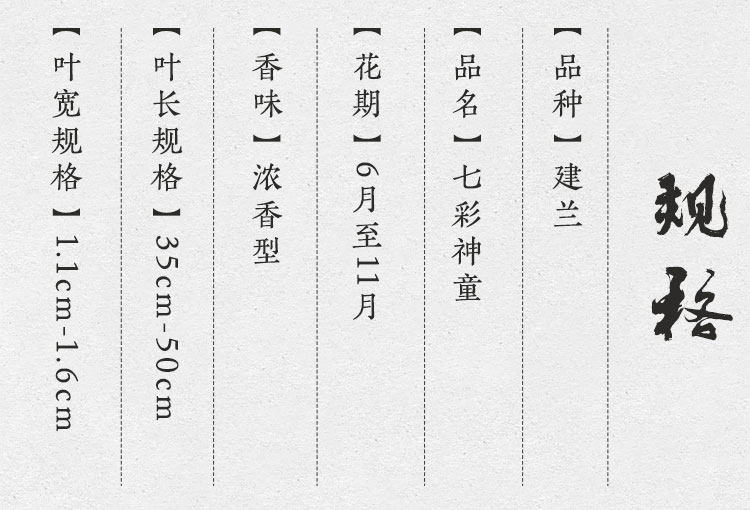 规格
【品种】建兰
【品名】七彩神童
【花期】6月至11月
【香味】浓香型
【叶长规格】35cm-50cm
【叶宽规格】1.1cm-1.6cm